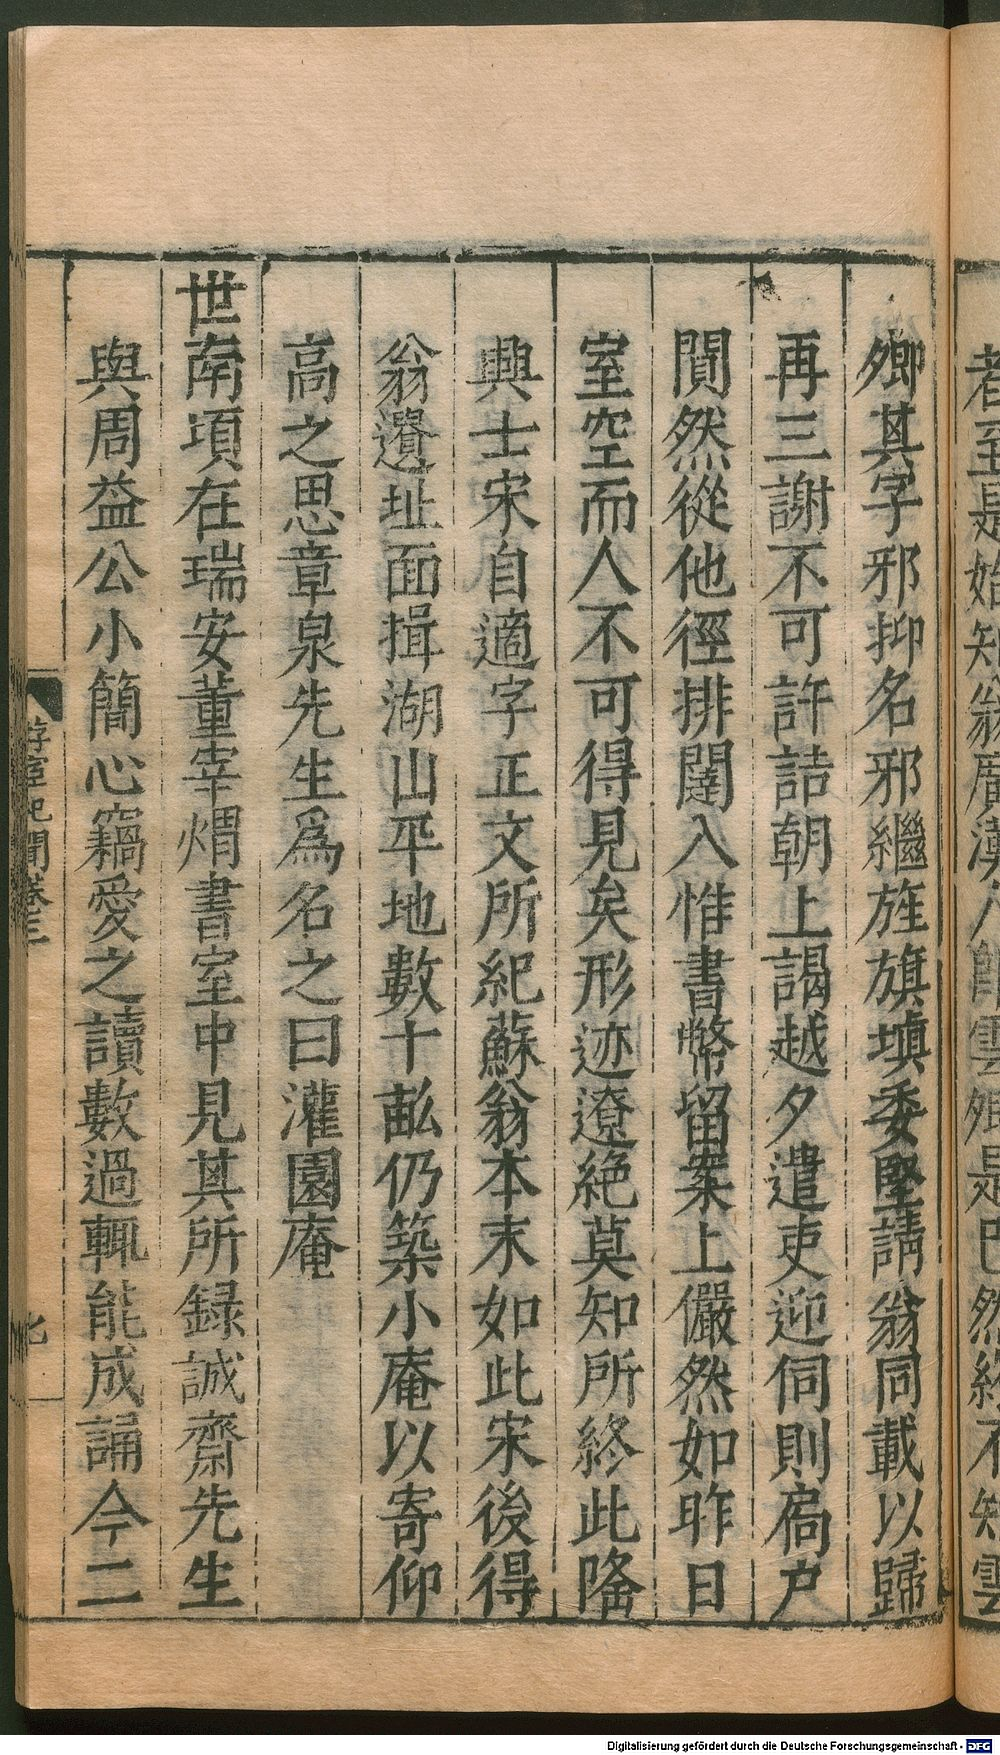 卿其字邪抑名邪繼旌旗塡委堅請翁同載以歸
再三謝不可許詰朝上謁越夕遣吏迎伺則扄户
闃然從他徑排闥入惟書幣留案上儼然如昨日
室空而人不可得見矣形迹遼絶莫知所終此隆
興士宋自適字正文所紀蘇翁本末如此宋後得
翁遺址面揖湖山平地數十畝仍築小庵以寄仰
高之思章泉先生爲名之曰灌園庵
世南項在瑞安董宰煟書室中見其所録誠齋先生
與周益公小簡心竊愛之讀數過輒能成誦今二
Digitalisierung gefördert durch die Deutsche Forschungsgemeinschaft - DFG